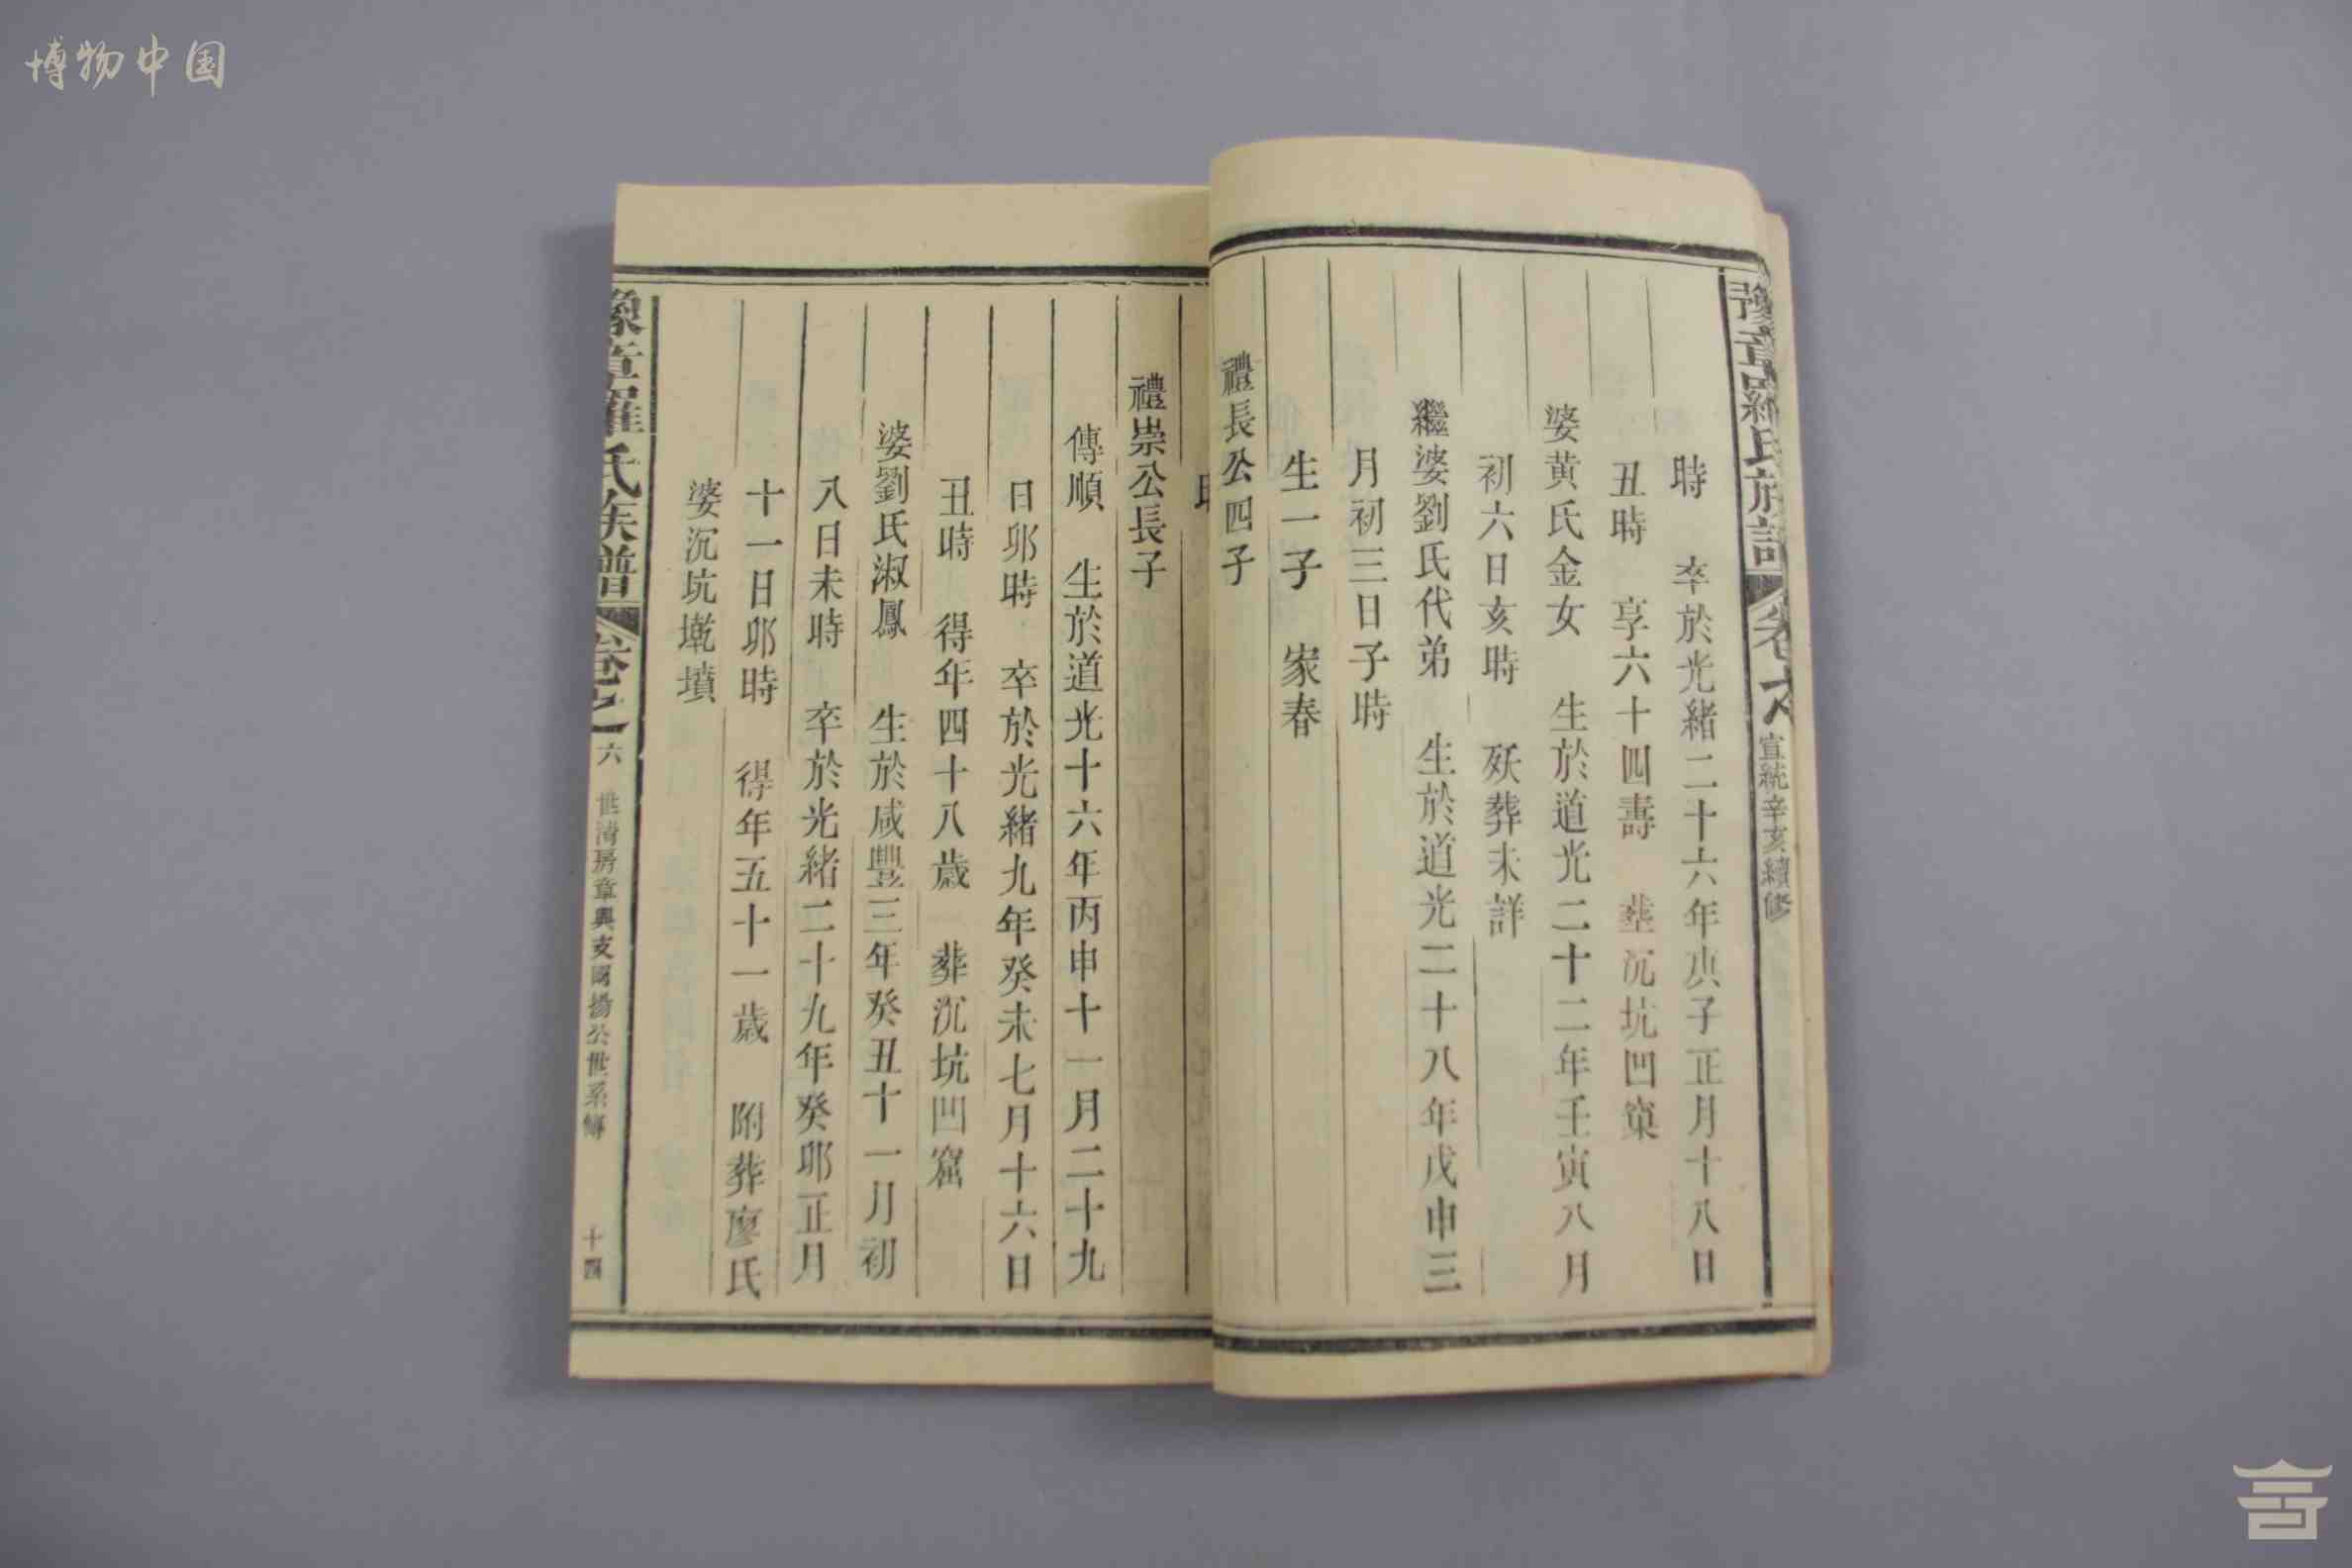 博物中国
豫章羅氏族譜
卷之六
宣統辛亥續修
時 卒於光緒二十六年庚子正月十八日
丑時 享六十四壽 塟沉坑凹窠
婆黄氏金女 生於道光二十二年壬寅八月
初六日亥時 殀葬未詳
繼婆劉氏代弟 生於道光二十八年戊申三
月初三日子時
生一子 家春
禮長公四子
禮崇公長子
傳順 生於道光十六年丙申十一月二十九
日卯時 卒於光緒九年癸未七月十六日
丑時 得年四十八歲 葬沉坑凹窩
婆劉氏淑鳳 生於咸豐三年癸丑十一月初
八日未時 卒於光緒二十九年癸卯正月
十一日卯時 得年五十一歲 附葬廖氏
婆沉坑墘墳
豫章羅氏族譜 卷之六 世清房章興支國揚公世系傳 十四